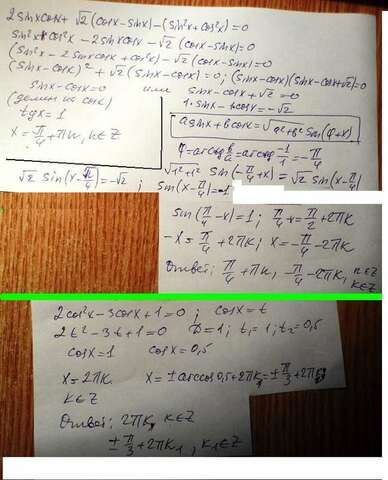 2sinxcosx + √2 (cosx - sinx) - (sin²x + cos²x) = 0
sin²x + cos²x - 2sinxcosx - √2 (cosx - sinx) = 0
(sin²x - 2sinxcosx + cos²x) - √2 (cosx - sinx) = 0
(sinx - cosx)² + √2 (sinx - cosx) = 0; (sinx - cosx)(sinx - cosx + √2) = 0
sinx - cosx = 0 или sinx - cosx + √2 = 0
(делим на cosx)
tgx = 1
x = π/4 + πk, k∈Z
1·sinx - 1·cosx = -√2
asinx + bcosx = √(a² + b²) sin(φ + x)
φ = arctg b/a = arctg -1/1 = -π/4
√(1² + 1²) sin(-π/4 + x) = √2 sin(x - π/4)
√2 sin(x - π/4) = -√2; sin(x - π/4) = -1
sin(π/4 - x) = 1; π/4 - x = π/2 + 2πk
-x = π/4 + 2πk; x = -π/4 - 2πk
Ответ: π/4 + πn, -π/4 - 2πk, n∈Z
k∈Z
2cos²x - 3cosx + 1 = 0; cosx = t
2t² - 3t + 1 = 0 D = 1; t₁ = 1; t₂ = 0,5
cosx = 1 cosx = 0,5
x = 2πk x = ± arccos 0,5 + 2πk₁ = ± π/3 + 2πk₁
k∈Z
Ответ: 2πk, k∈Z
± π/3 + 2πk₁, k₁∈Z